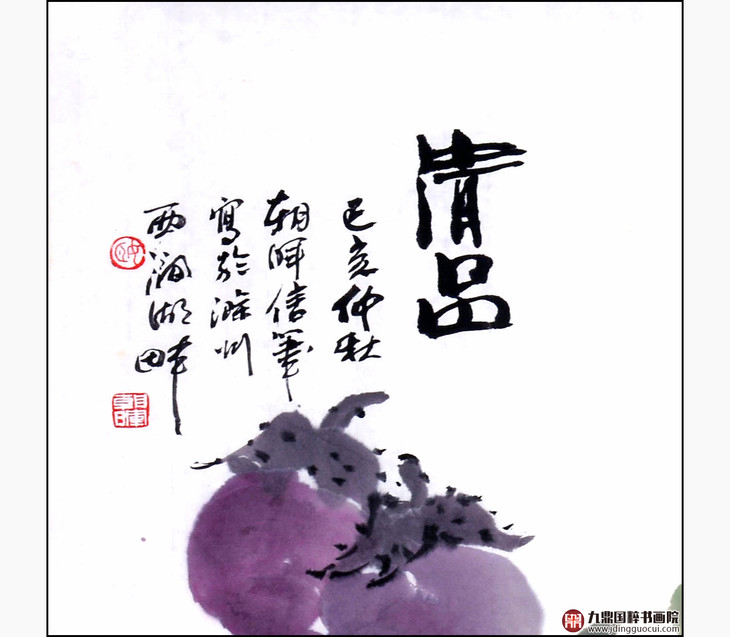 清品
己亥仲秋
朝晖信筆
寫於滁州
西澗湖畔
九鼎国粹书画院
www.jdingguocui.com